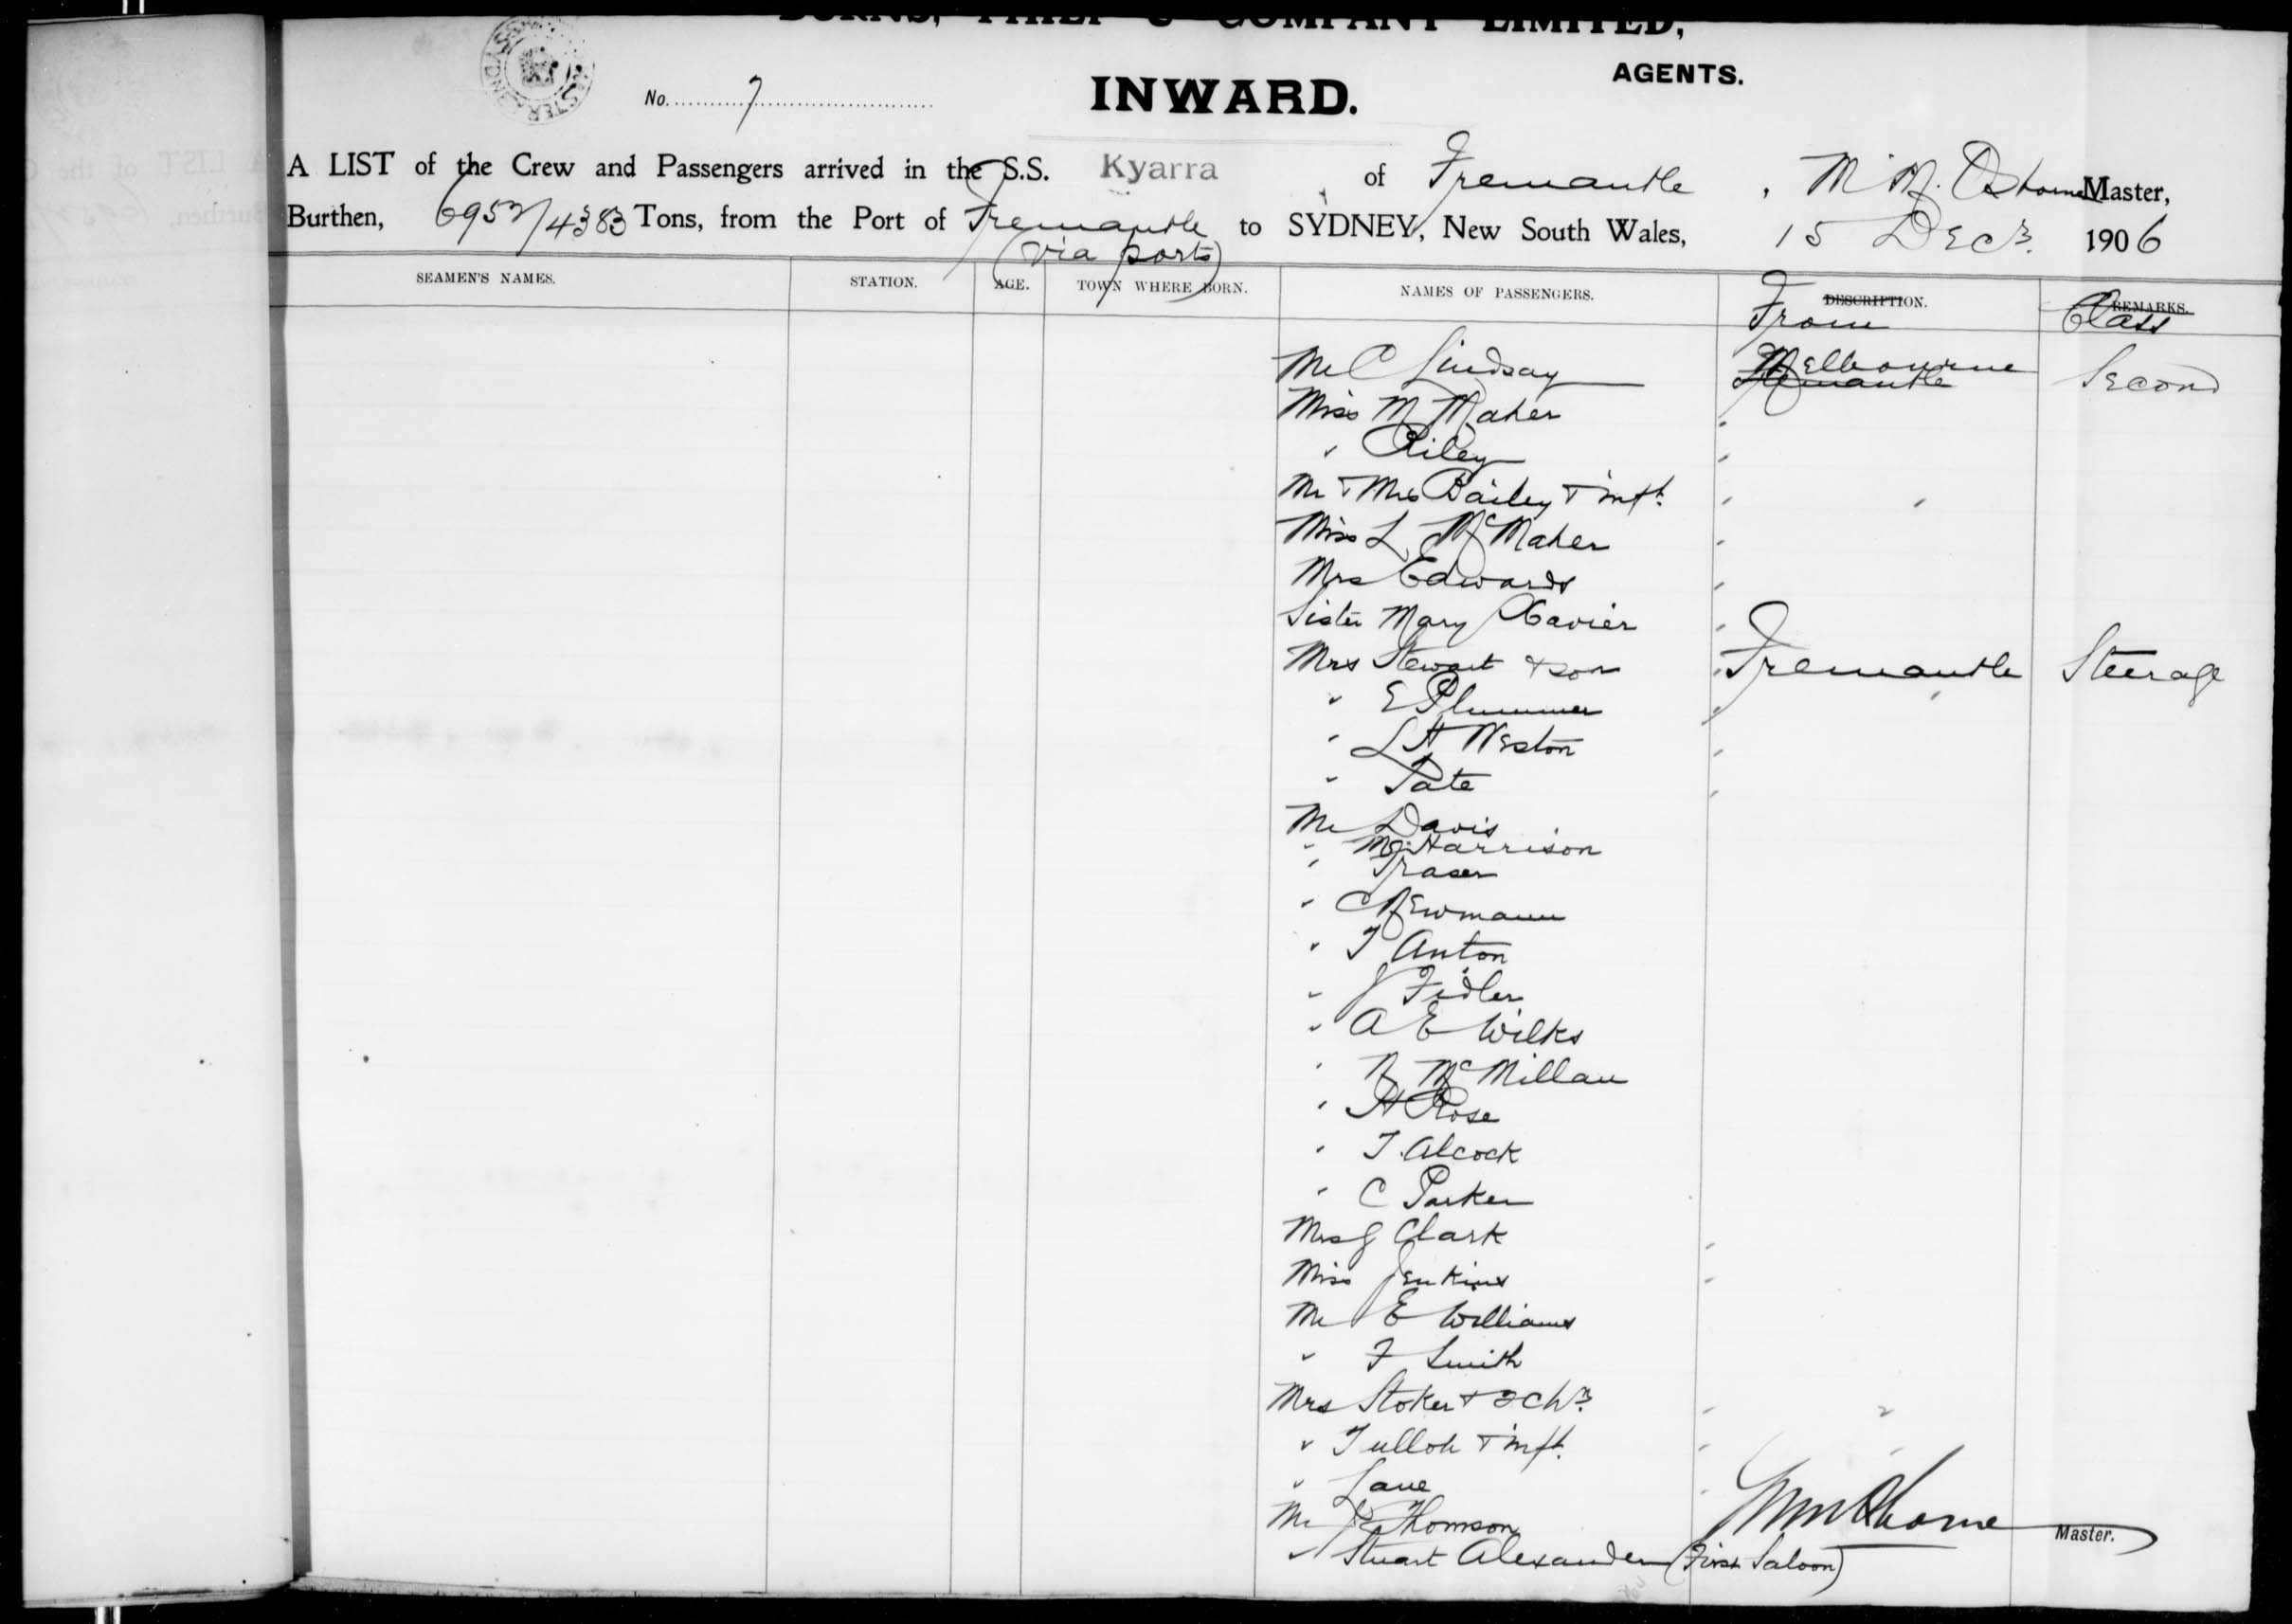 BURNS, PHILP & COMPANY LIMITED,
AGENTS.
No. 7
INWARD.
A LIST of the Crew and Passengers arrived in the S.S. Kyarra of Fremantle, M M. Osborne Master,
Burthen, 6952/4383 Tons, from the Port of Fremantle to SYDNEY, New South Wales, 15 Decr. 1906
(via ports)
SEAMEN'S NAMES. STATION. AGE. TOWN WHERE BORN. NAMES OF PASSENGERS. DESCRIPTION. REMARKS.
From Class
Mr C Lindsay Melbourne Second
Fremantle
Miss M Maher "
" Riley "
Mr & Mrs Bailey & inft. " "
Miss L McMaher "
Mrs Edwards "
Sister Mary Xavier "
Mrs Stewart & son " Fremantle Steerage
" E Plummer " "
" L H Weston "
" Pate "
Mr Davis
" Harrison
" Fraser
" C Newmann
" T Anton
" J Fidler
" A E Wilks
" N McMillan
" H Rose
" T. Alcock
" C Parker
Mrs J Clark "
Miss Jenkins "
Mr E Williams
" F Smith
Mrs Stoker & 2 Chn. "
" Tulloh & inft. "
" Lane "
Mr Thomson
" Stuart Alexander (First Saloon)
Master.